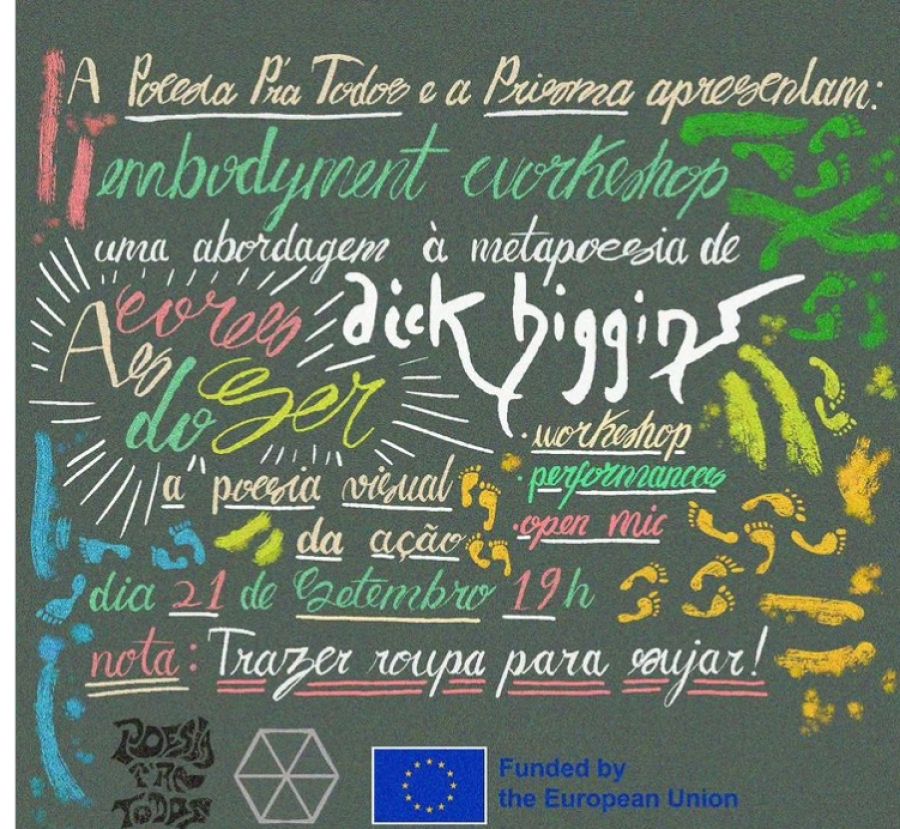 A Poesia P'ra Todos e a Prisma apresentam:
embodyment workshop
uma abordagem à metapoesia de
dick higgins
As cores
do Ser
a poesia visual
da ação
· workshop
· performances
· open mic
dia 21 de Setembro 19h
nota: Trazer roupa para sujar!
POESIA
P'RA
TODOS
Funded by
the European Union